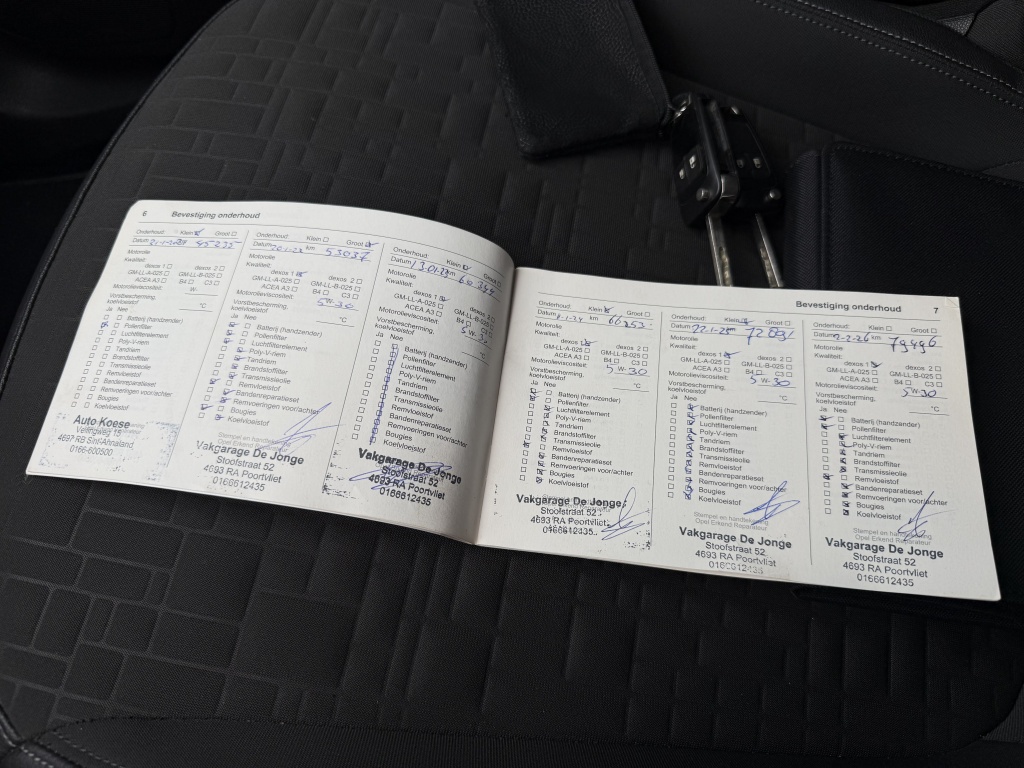 6 Bevestiging onderhoud
Onderhoud: Klein Groot
Datum km 45232
Motorolie
Kwaliteit:
dexos 1 dexos 2
GM-LL-A-025 GM-LL-B-025
ACEA A3 B4 C3
Motorolieviscositeit:
Vorstbescherming, koelvloeistof °C
Ja Nee
Batterij (handzender)
Pollenfilter
Luchtfilterelement
Poly-V-riem
Tandriem
Brandstoffilter
Transmissieolie
Remvloeistof
Bandenreparatieset
Remvoeringen voor/achter
Bougies
Koelvloeistof
Auto Koese
Veilingweg 15
4697 RB Sint-Annaland
0166-600500
Onderhoud: Klein Groot
Datum 20-1-22 km 53037
Motorolie
Kwaliteit:
dexos 1 dexos 2
GM-LL-A-025 GM-LL-B-025
ACEA A3 B4 C3
Motorolieviscositeit: 5W-30
Vorstbescherming, koelvloeistof °C
Ja Nee
Batterij (handzender)
Pollenfilter
Luchtfilterelement
Poly-V-riem
Tandriem
Brandstoffilter
Transmissieolie
Remvloeistof
Bandenreparatieset
Remvoeringen voor/achter
Bougies
Koelvloeistof
Stempel en handtekening
Opel Erkend Reparateur
Vakgarage De Jonge
Stoofstraat 52
4693 RA Poortvliet
0166612435
Onderhoud: Klein Groot
Datum 13-01-23 km 60344
Motorolie
Kwaliteit:
dexos 1 dexos 2
GM-LL-A-025 GM-LL-B-025
ACEA A3 B4 C3
Motorolieviscositeit: 5W-30
Vorstbescherming, koelvloeistof °C
Ja Nee
Batterij (handzender)
Pollenfilter
Luchtfilterelement
Poly-V-riem
Tandriem
Brandstoffilter
Transmissieolie
Remvloeistof
Bandenreparatieset
Remvoeringen voor/achter
Bougies
Koelvloeistof
Vakgarage De Jonge
Stoofstraat 52
4693 RA Poortvliet
0166612435
Bevestiging onderhoud 7
Onderhoud: Klein Groot
Datum km 66253
Motorolie
Kwaliteit:
dexos 1 dexos 2
GM-LL-A-025 GM-LL-B-025
ACEA A3 B4 C3
Motorolieviscositeit: 5W-30
Vorstbescherming, koelvloeistof °C
Ja Nee
Batterij (handzender)
Pollenfilter
Luchtfilterelement
Poly-V-riem
Tandriem
Brandstoffilter
Transmissieolie
Remvloeistof
Bandenreparatieset
Remvoeringen voor/achter
Bougies
Koelvloeistof
Vakgarage De Jonge
Stoofstraat 52
4693 RA Poortvliet
0166612435
Onderhoud: Klein Groot
Datum 22-1-25 km
Motorolie
Kwaliteit:
dexos 1 dexos 2
GM-LL-A-025 GM-LL-B-025
ACEA A3 B4 C3
Motorolieviscositeit: 5W-30
Vorstbescherming, koelvloeistof °C
Ja Nee
Batterij (handzender)
Pollenfilter
Luchtfilterelement
Poly-V-riem
Tandriem
Brandstoffilter
Transmissieolie
Remvloeistof
Bandenreparatieset
Remvoeringen voor/achter
Bougies
Koelvloeistof
Stempel en handtekening
Opel Erkend Reparateur
Vakgarage De Jonge
Stoofstraat 52
4693 RA Poortvliet
0166612435
Onderhoud: Klein Groot
Datum 2-2-26 km 79496
Motorolie
Kwaliteit:
dexos 1 dexos 2
GM-LL-A-025 GM-LL-B-025
ACEA A3 B4 C3
Motorolieviscositeit: 5W-30
Vorstbescherming, koelvloeistof °C
Ja Nee
Batterij (handzender)
Pollenfilter
Luchtfilterelement
Poly-V-riem
Tandriem
Brandstoffilter
Transmissieolie
Remvloeistof
Bandenreparatieset
Remvoeringen voor/achter
Bougies
Koelvloeistof
Stempel en handtekening
Opel Erkend Reparateur
Vakgarage De Jonge
Stoofstraat 52
4693 RA Poortvliet
0166612435